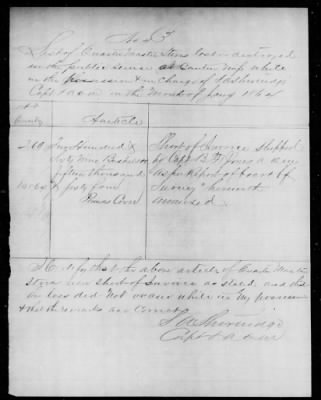 List of Quarter Master Stores lost or destroyed
in the public service at Canton Miss while
in the possession & in charge of
Capt & A Q M in the Month of Jany 1862
Articles
269
Two Hundred &
Sixty Nine Bushels or
fifteen thousand
& sixty four
Pounds Corn
Short of Invoice shipped
by Capt B. F. Jones &
as per Report of Board of
Survey herewith
annexed.
I Certify that the above articles of Quarter Master
Stores were short of Invoice as stated and
the loss did not occur while in my possession
& that the remarks are Correct
Capt & A Q M